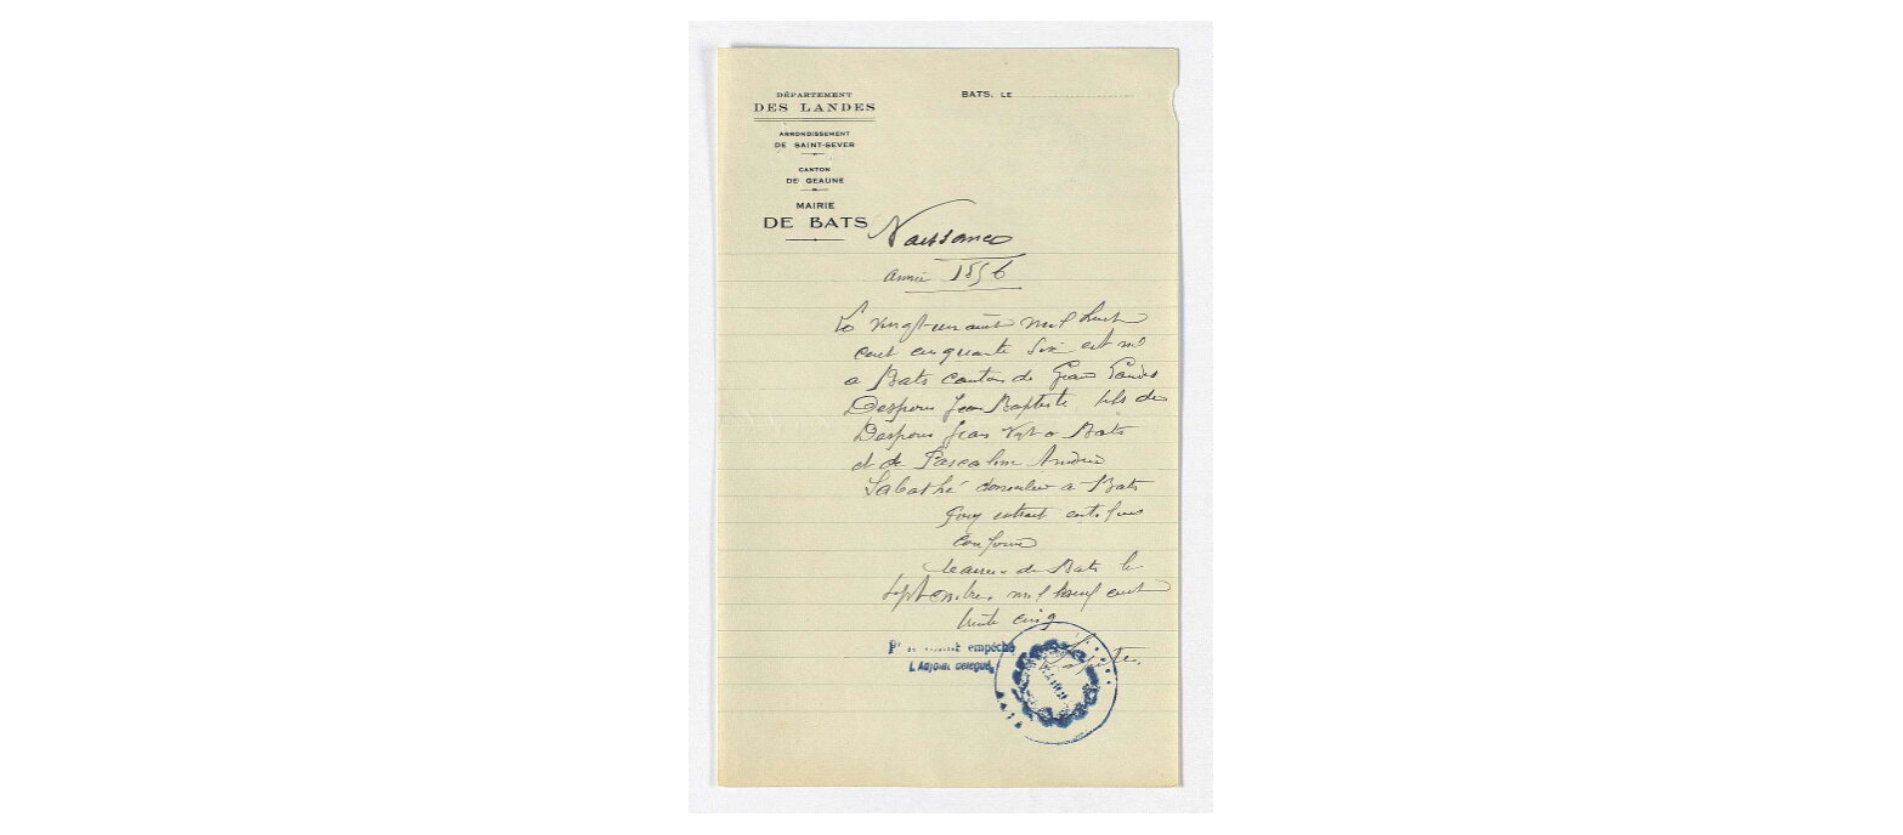 DÉPARTEMENT
DES LANDES
BATS, LE
ARRONDISSEMENT
DE SAINT-SEVER
CANTON
DE GEAUNE
MAIRIE
DE BATS
Naissance
année 1856
Le vingt-un août mil huit
cent cinquante six est né
a Bats canton de Geaune Landes
Jean Baptiste fils de
Jean a Bats
et de Pascaline
Labathé a Bats
Pour extrait certifié
conforme
Mairie de Bats le
septembre mil neuf cent
trente cinq
empêché
L'Adjoint délégué,
MAIRIE
BATS